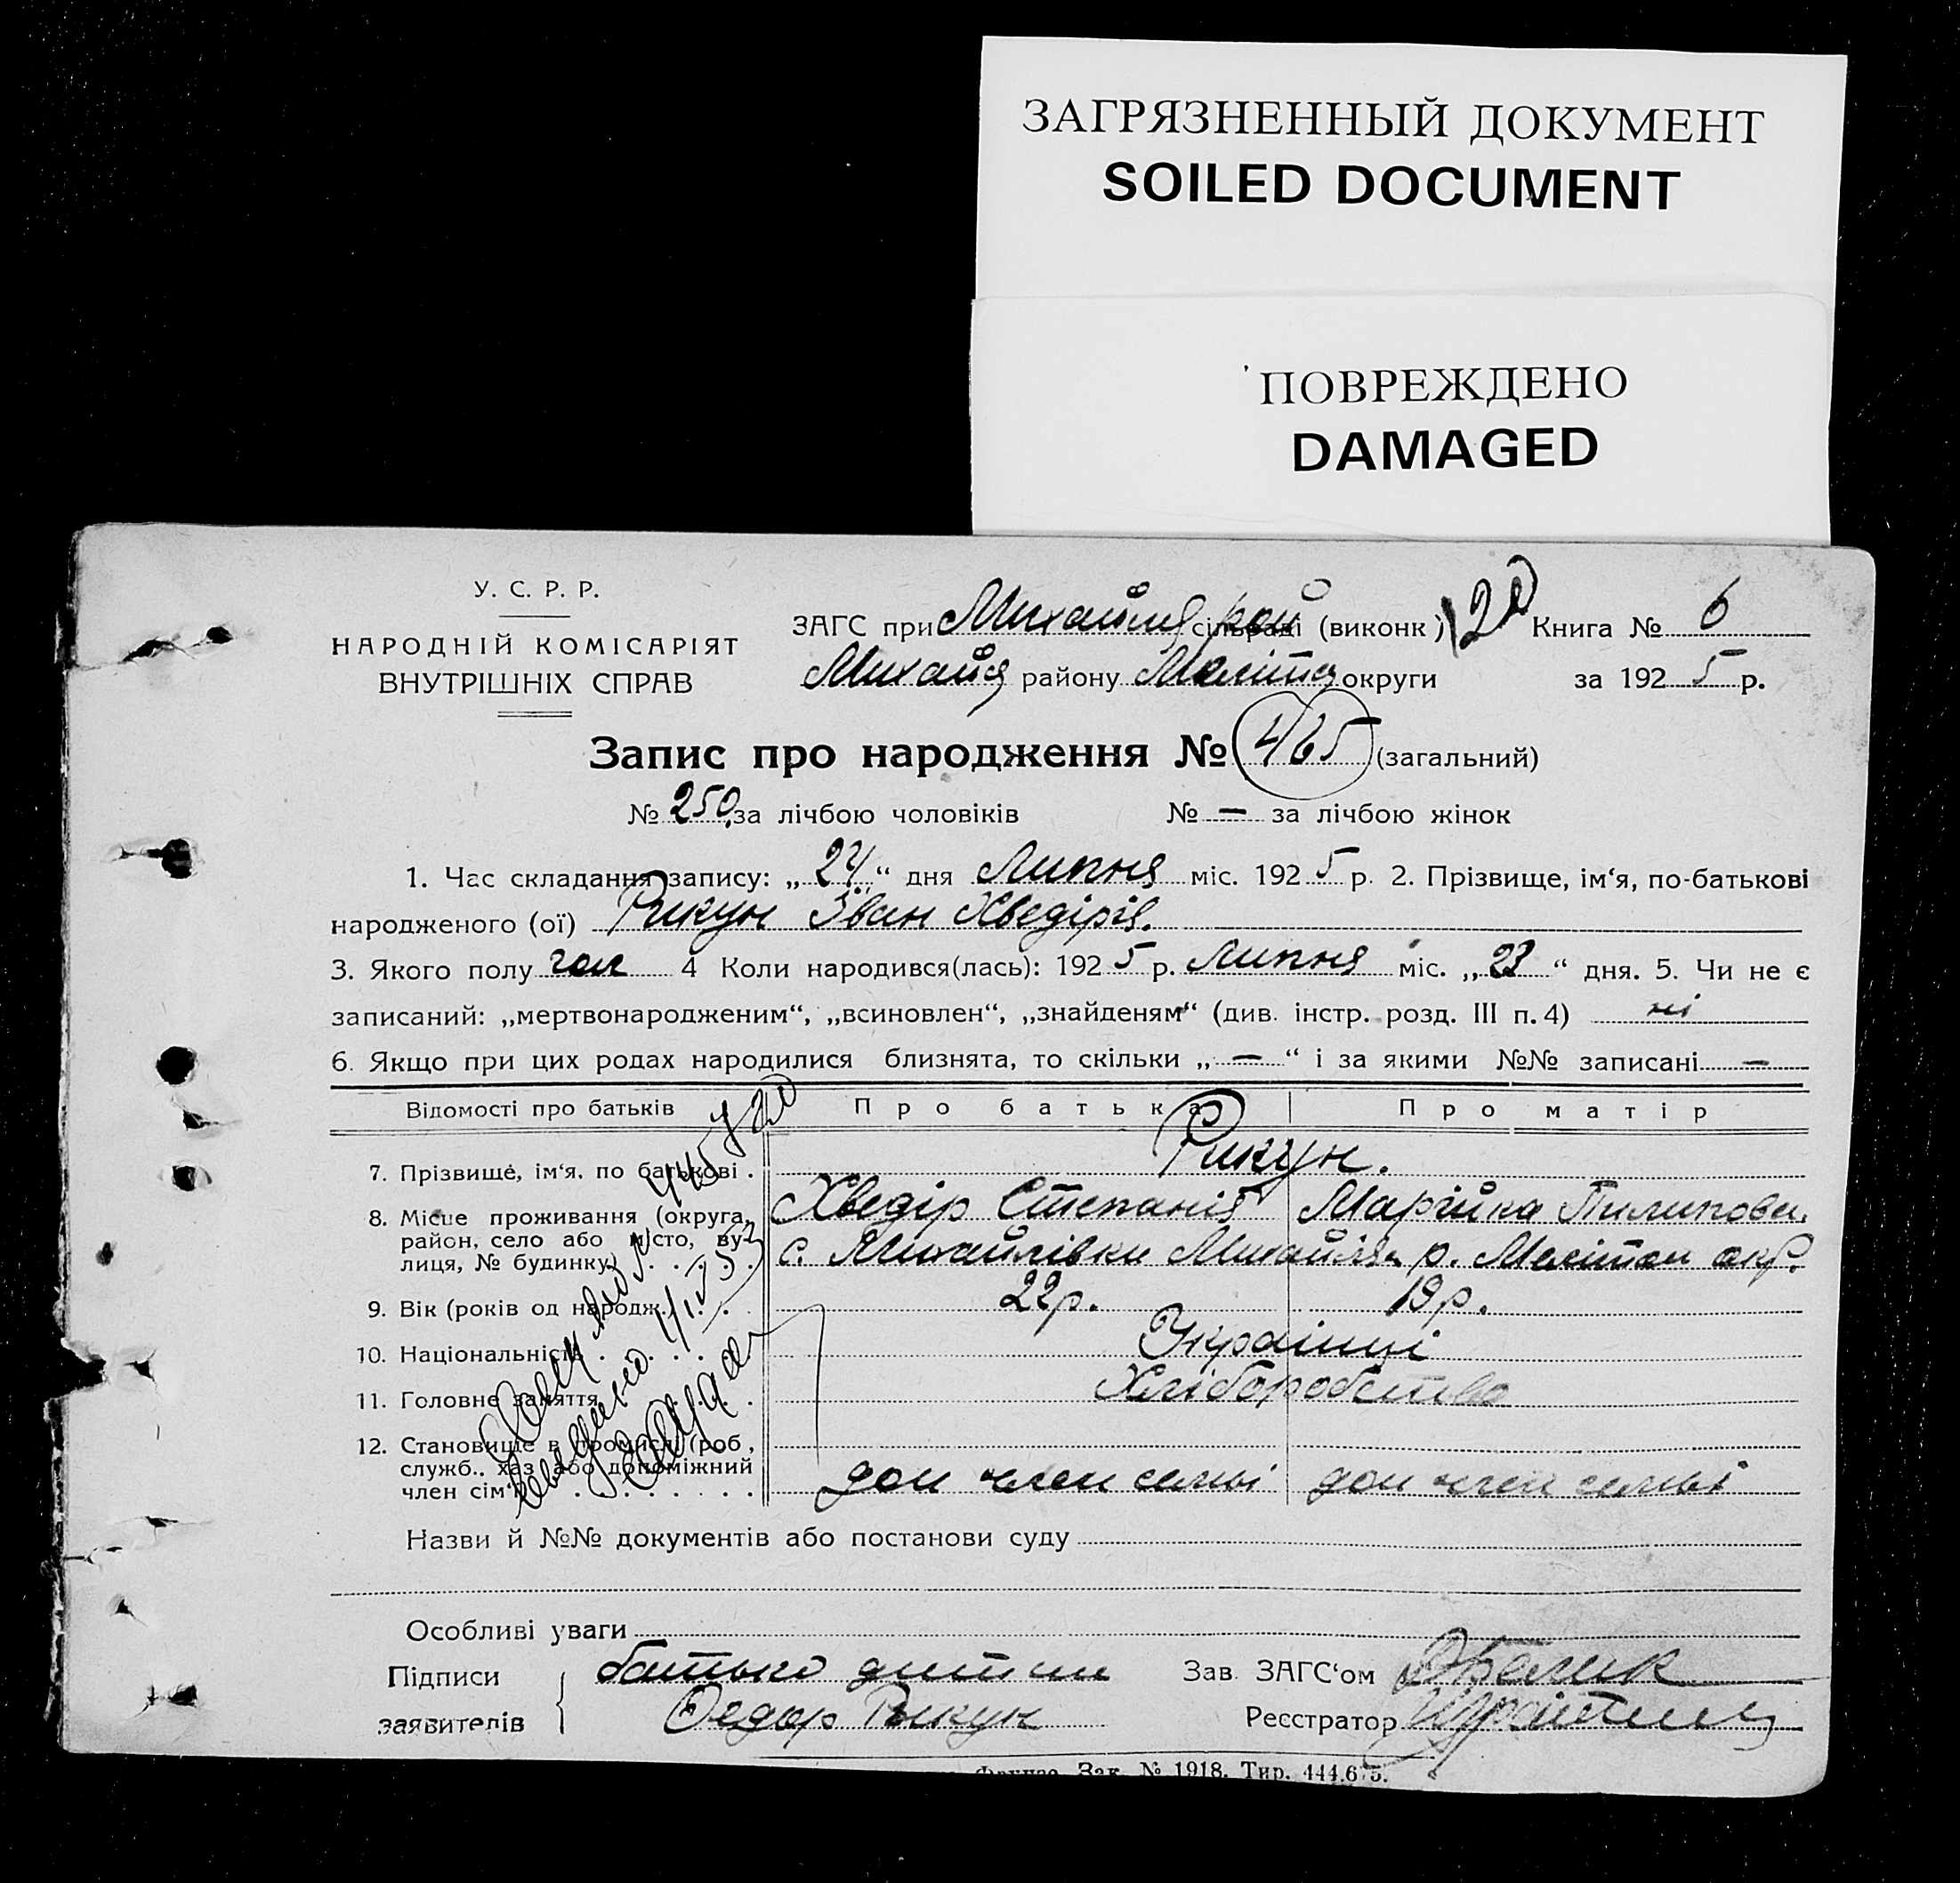 ЗАГРЯЗНЕННЫЙ ДОКУМЕНТ
SOILED DOCUMENT
ПОВРЕЖДЕНО
DAMAGED
У. С. Р. Р.
НАРОДНІЙ КОМІСАРІЯТ
ВНУТРІШНІХ СПРАВ
ЗАГС при Михайлів рай сільраді (виконк) Книга № 6
Михайл району Меліт округи за 1925 р.
Запис про народження № 465 (загальний)
№ 250 за лічбою чоловіків № — за лічбою жінок
1. Час складання запису: „24“ дня Липня міс. 1925 р. 2. Прізвище, ім‘я, по-батькові
народженого (ої) Рикун Іван Хведірів.
3. Якого полу чол 4 Коли народився(лась): 1925 р. Липня міс. „23“ дня. 5. Чи не є
записаний: „мертвонародженим“, „всиновлен“, „знайденям“ (див. інстр. розд. III п. 4) ні
6. Якщо при цих родах народилися близнята, то скільки „—“ і за якими №№ записані —
Відомості про батьків Про батька Про матір
7. Прізвище, ім‘я, по батькові . Рикун.
Хведір Степанів Марійка Пилипова.
8. Місце проживання (округа, район, село або місто, вулиця, № будинку) с. Михайлівки Михайлів. р. Мелітоп окр.
9. Вік (років од народж.) 22 р. 19 р.
10. Національність Українці
11. Головне заняття Хліборобство
12. Становище в промислі (роб., служб., хаз. або допоміжний член сім‘ї) доп член семьі доп член семьі
Назви й №№ документів або постанови суду
Особливі уваги
Підписи заявителів батько дитини
Федор Рикун
Зав. ЗАГС‘ом
Реєстратор
Зак. № 1918. Тир. 444.675.